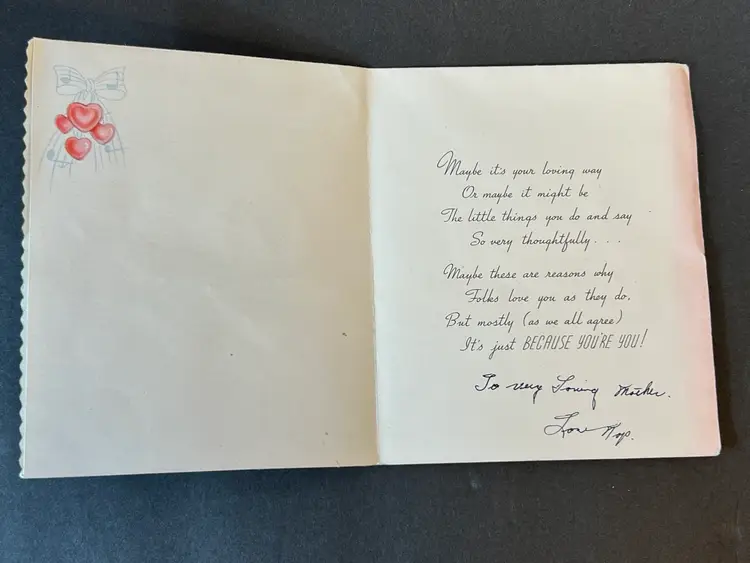 Maybe it's your loving way
Or maybe it might be
The little things you do and say
So very thoughtfully. . .
Maybe these are reasons why
Folks love you as they do,
But mostly (as we all agree)
It's just BECAUSE YOU'RE YOU!
To very Loving Mother.